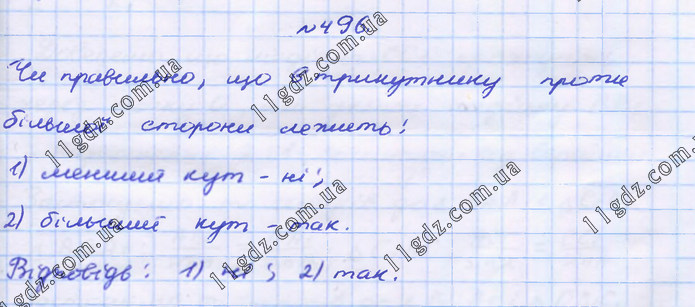 №496
Чи правильно, що в трикутнику проти
більшої сторони лежить:
1) менший кут - ні;
2) більший кут - так.
Відповідь: 1) ні; 2) так.
11gdz.com.ua
11gdz.com.ua
11gdz.com.ua
11gdz.com.ua
11gdz.com.ua
11gdz.com.ua